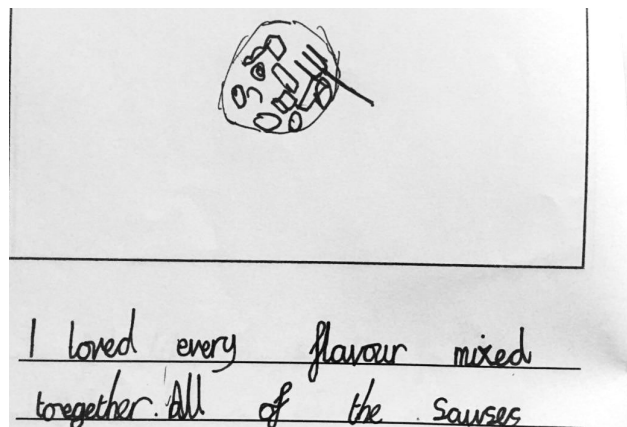 I loved every flavour mixed
toregether. All of the sawses